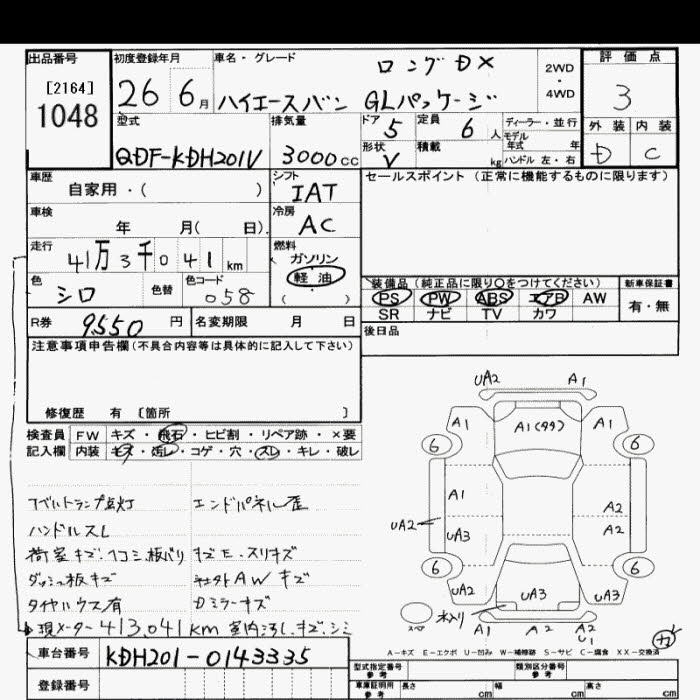 出品番号 初度登録年月 車名・グレード 評価点
[2164] 26 6月 ハイエースバン ロングDX GLパッケージ 2WD・4WD 3
1048
型式 排気量 ドア 5 定員 6人 ディーラー・並行 外装 内装
QDF-KDH201V 3000cc 形状 V 積載 kg モデル年式 年 D C
ハンドル 左・右
車歴 シフト セールスポイント (正常に機能するものに限ります)
自家用・( ) IAT
車検 冷房
年 月( 日) AC
走行 燃料
41万3千041km ガソリン
軽油
色 色替 色コード ( ) 装備品 (純正品に限り○をつけてください) 新車保証書
シロ 058 PS PW ABS エアB AW 有・無
SR ナビ TV カワ
R券 9550円 名変期限 月 日 後日品
注意事項申告欄(不具合内容等は具体的に記入して下さい)
修復歴 有 [箇所 ]
検査員 FW キズ・飛石・ヒビ割・リペア跡・×要
記入欄 内装 キズ・汚レ・コゲ・穴・スレ・キレ・破レ
UA2 A1
A1 A1(タタ) A1
6 6
A1 A2
UA2 UA3 A2
6 6
UA2 UA3 UA3
スペア 木入り A1 A2 A2
U1
ベルトランプ点灯 エンドパネル歪
ハンドルスレ
荷室キズ、ヘコミ、板バリ
ダッシュ板キズ 社外AWキズ
タイヤハウス有 Dミラーキズ
現メーター413,041km 室内汚レ、キズ、シミ
A-キズ E-エクボ U-凹み W-補修跡 S-サビ C-腐食 XX-交換済
車台番号 KDH201-0143335
型式指定番号 参考 類別区分番号 参考
登録番号 車庫証明用 参考 長さ cm 幅 cm 高さ cm